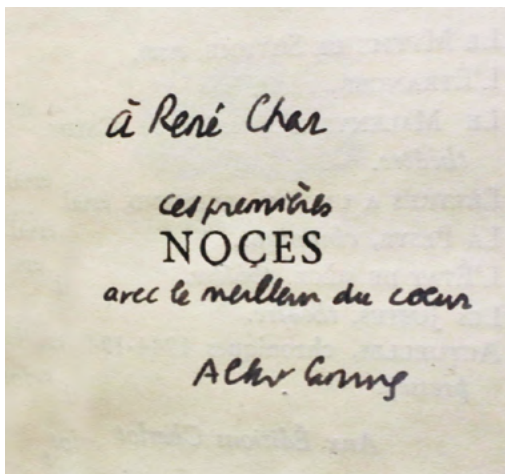 à René Char
ces premières
NOCES
avec le meilleur du coeur
Albert Camus